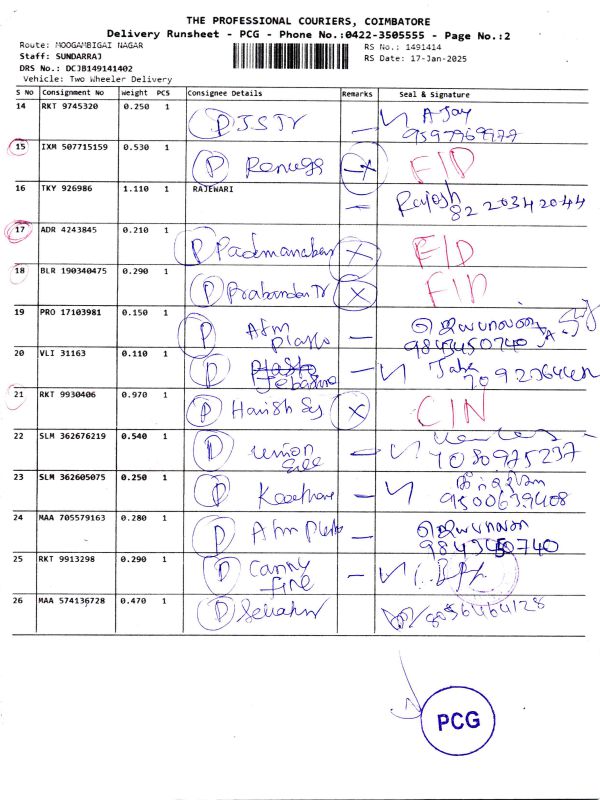 THE PROFESSIONAL COURIERS, COIMBATORE
Delivery Runsheet - PCG - Phone No.:0422-3505555 - Page No.:2
Route: MOOGAMBIGAI NAGAR RS No.: 1491414
Staff: SUNDARRAJ RS Date: 17-Jan-2025
DRS No.: DCJB149141402
Vehicle: Two Wheeler Delivery
S No Consignment No Weight PCS Consignee Details Remarks Seal & Signature
14 RKT 9745320 0.250 1 P JSTr — Ajay
9597969977
15 IXM 507715159 0.530 1 P Renuga X F/D
16 TKY 926986 1.110 1 RAJEWARI — Rajesh
82 20342044
17 ADR 4243845 0.210 1 P Padmanaban X F/D
18 BLR 190340475 0.290 1 P Prabandan Tr X F/D
19 PRO 17103981 0.150 1 P Afm
Plasto — ஜெயபாலன்
9843450740
20 VLI 31163 0.110 1 P Plasto —
21 RKT 9930406 0.970 1 P Harish Sy X C/N
22 SLM 362676219 0.540 1 P union —
7080975237
23 SLM 362605075 0.250 1 P —
9500639408
24 MAA 705579163 0.280 1 P Afm Plasto — ஜெயபாலன்
9843450740
25 RKT 9913298 0.290 1 P Canny
fine —
26 MAA 574136728 0.470 1 P 8056464128
PCG